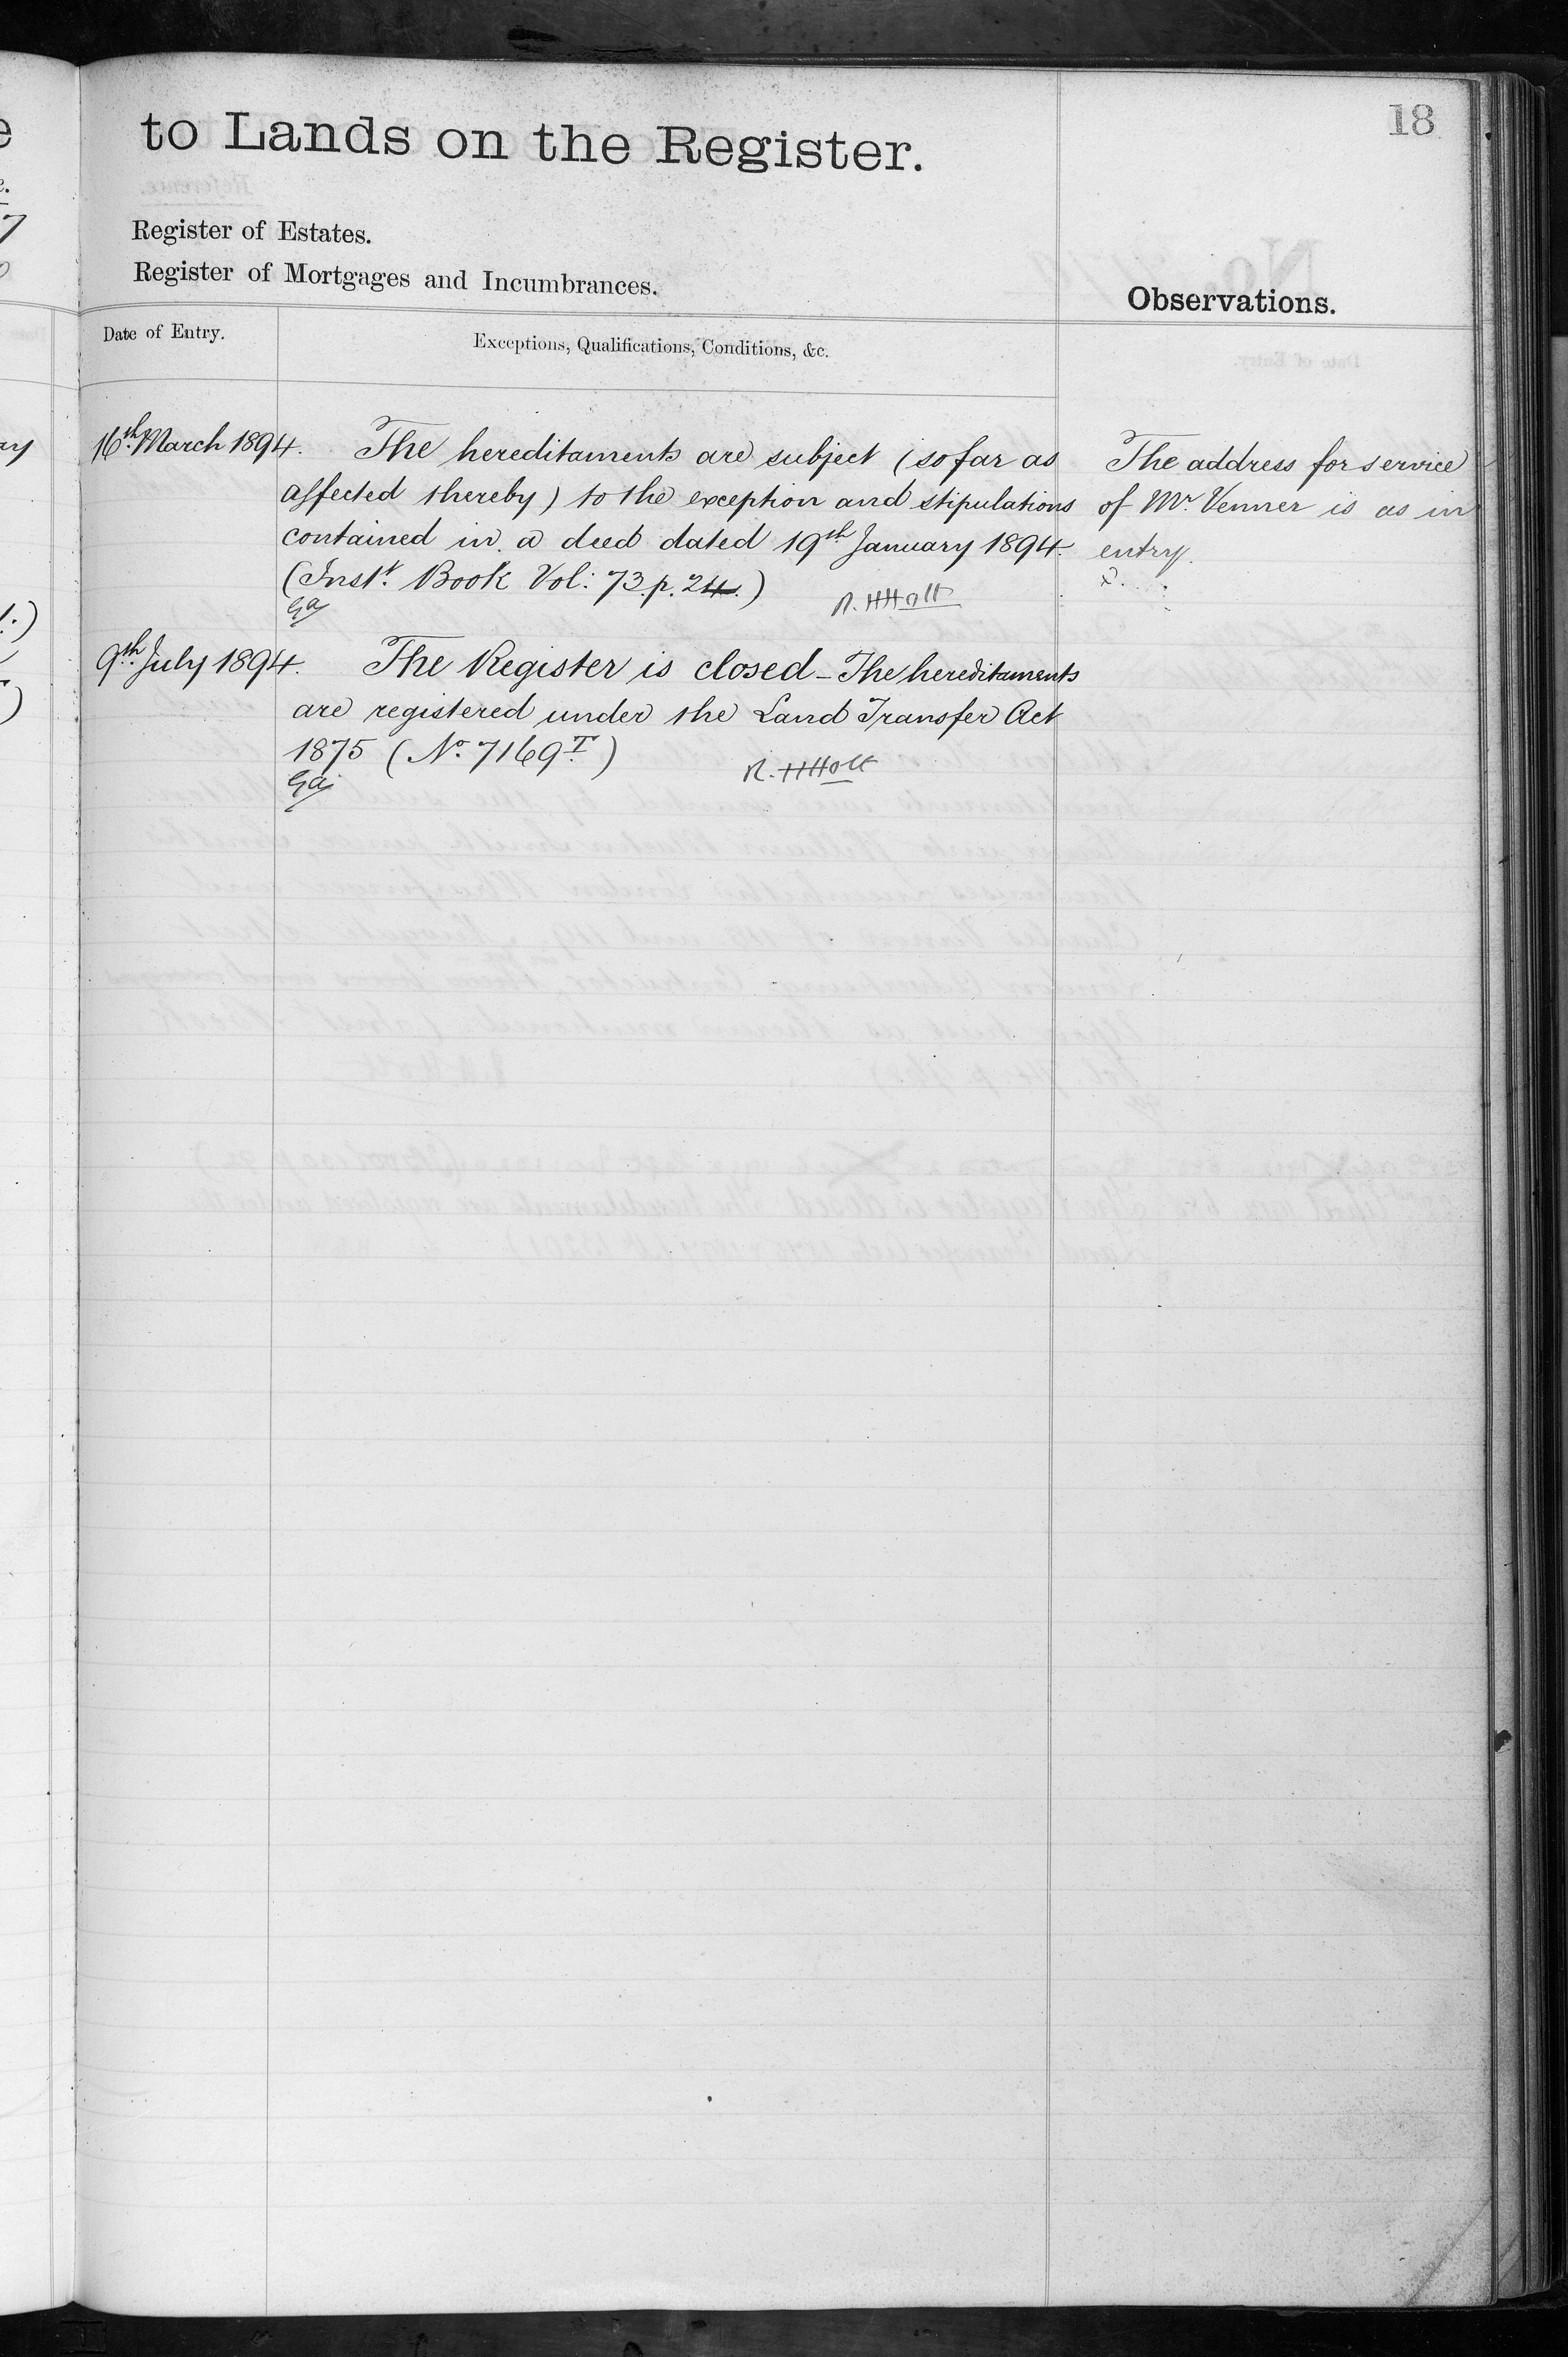 18
to Lands on the Register.
Register of Estates.
Register of Mortgages and Incumbrances.
Observations.
Date of Entry.
Exceptions, Qualifications, Conditions, &c.
16th March 1894. The hereditaments are subject (so far as
affected thereby) to the exception and stipulations
contained in a deed dated 19th January 1894.
(Inst. Book Vol: 73. p. 24.)
R. H Holt
The address for service
of Mr. Venner is as in
entry.
9th July 1894. The Register is closed - The hereditaments
are registered under the Land Transfer Act
1875 (No. 7169 T.)
R. H Holt